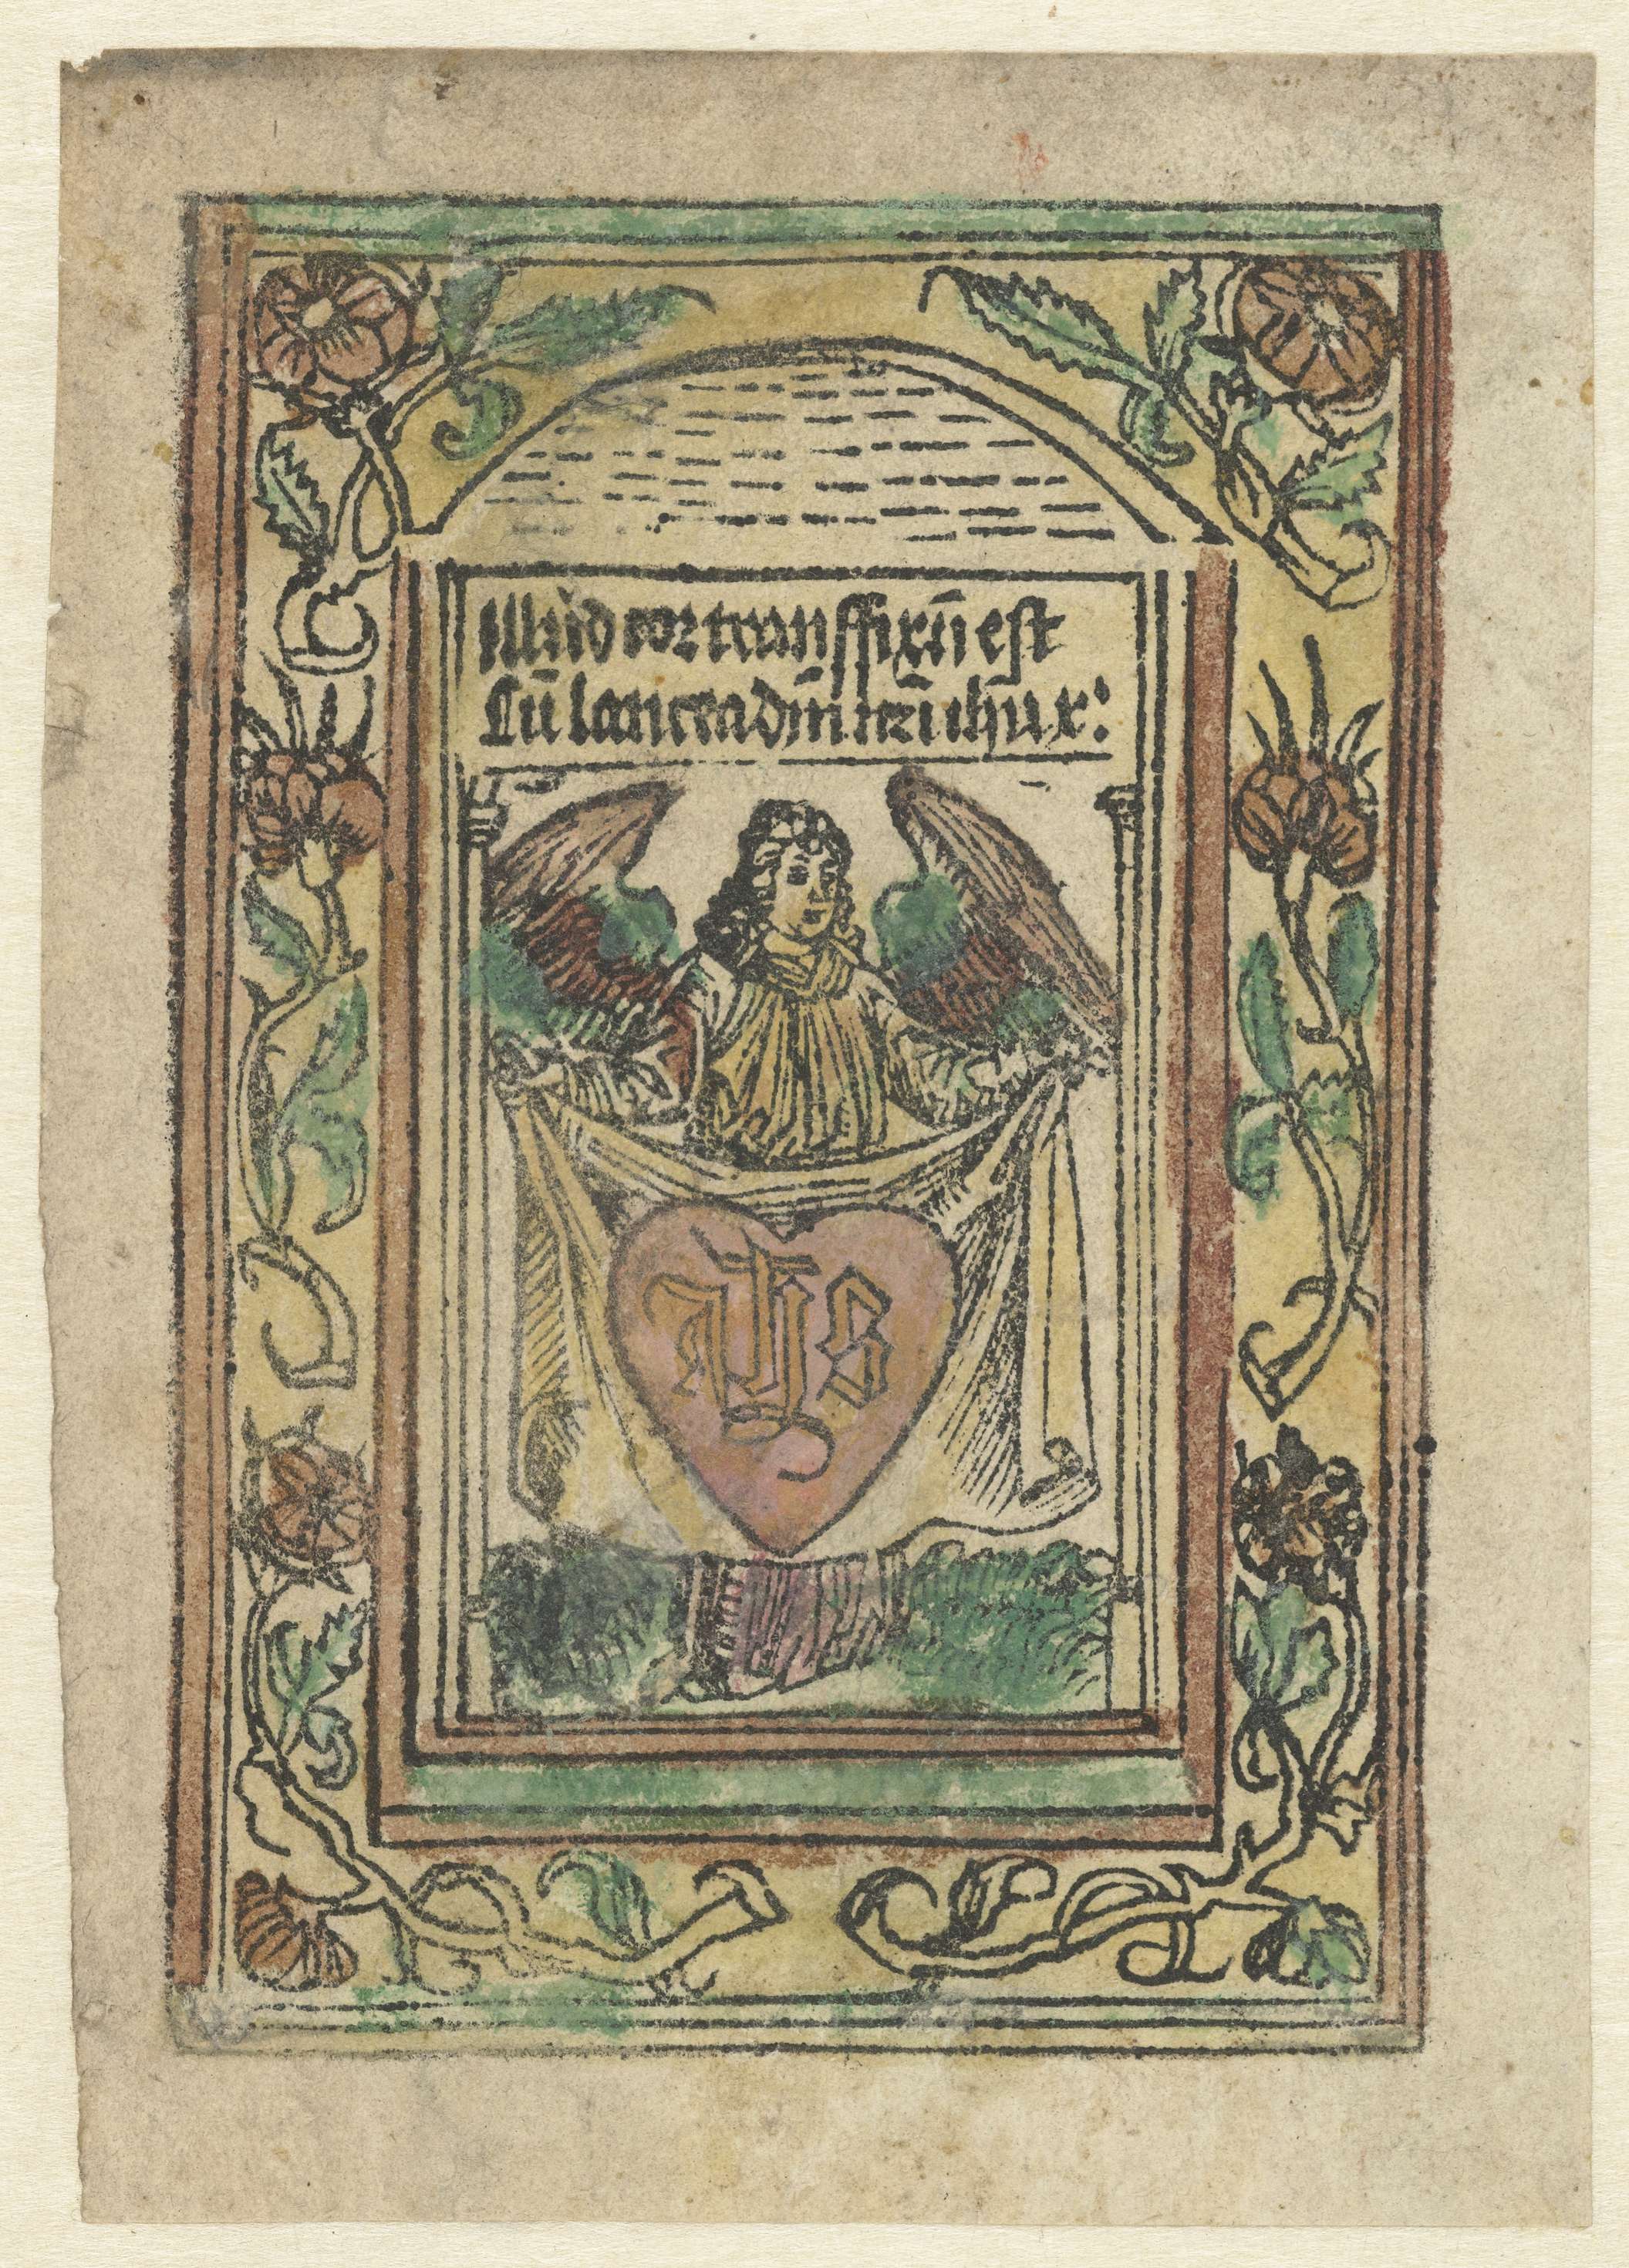 Illud cor transffixū est
Cū lancea dm̄i nr̄i ihu x:
yhs